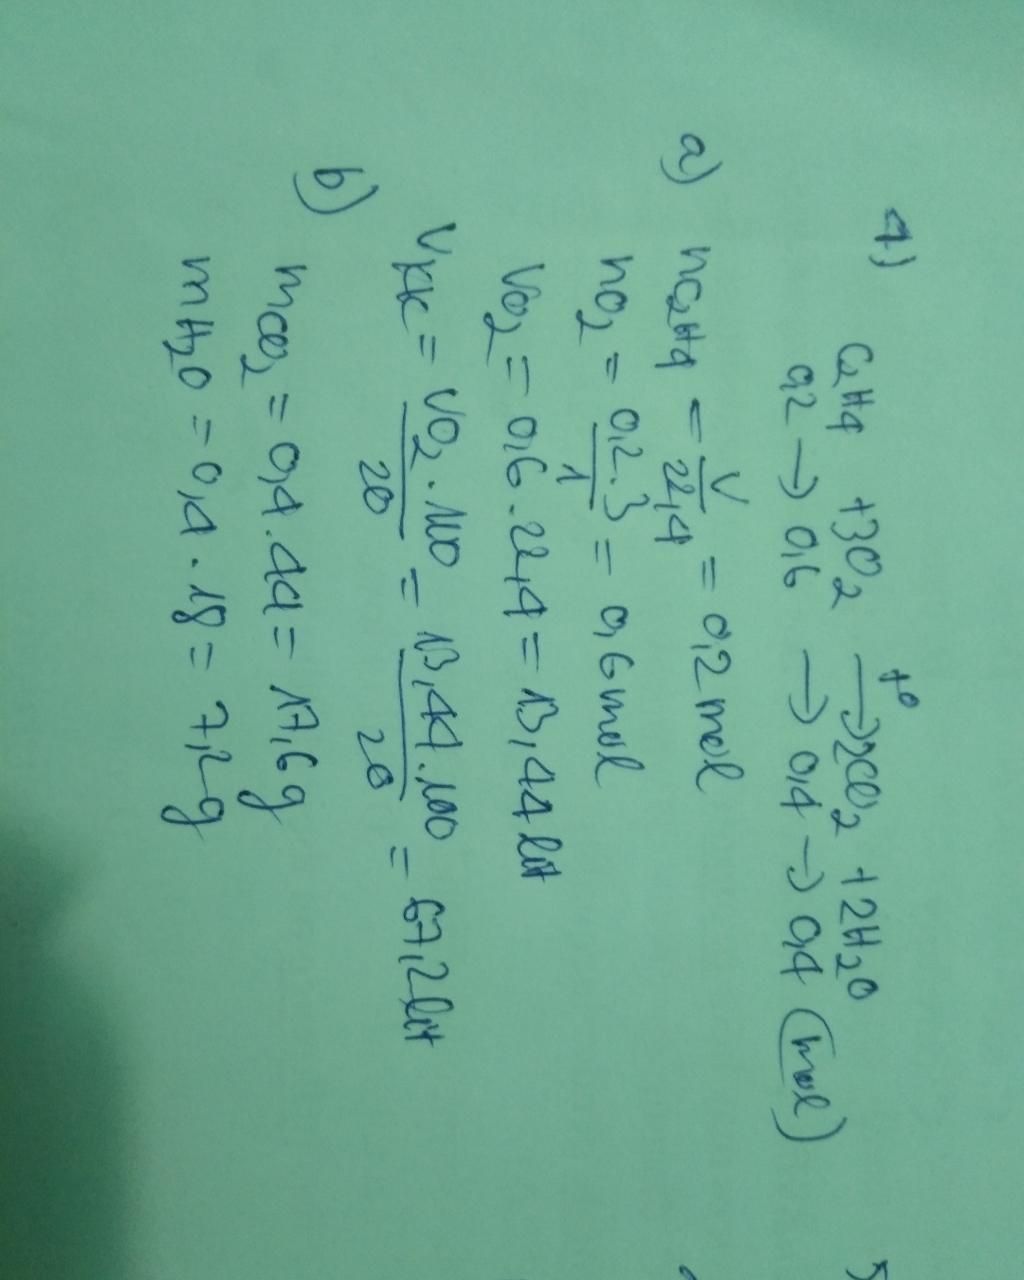 4)
t°
C2H4 + 3O2 → 2CO2 + 2H2O
0,2 → 0,6 → 0,4 → 0,4 (mol)
a) nC2H4 = V/22,4 = 0,2 mol
nO2 = 0,2.3/1 = 0,6 mol
VO2 = 0,6.22,4 = 13,44 lit
Vkk = VO2.100/20 = 13,44.100/20 = 67,2 lit
b) mCO2 = 0,4.44 = 17,6 g
mH2O = 0,4.18 = 7,2 g